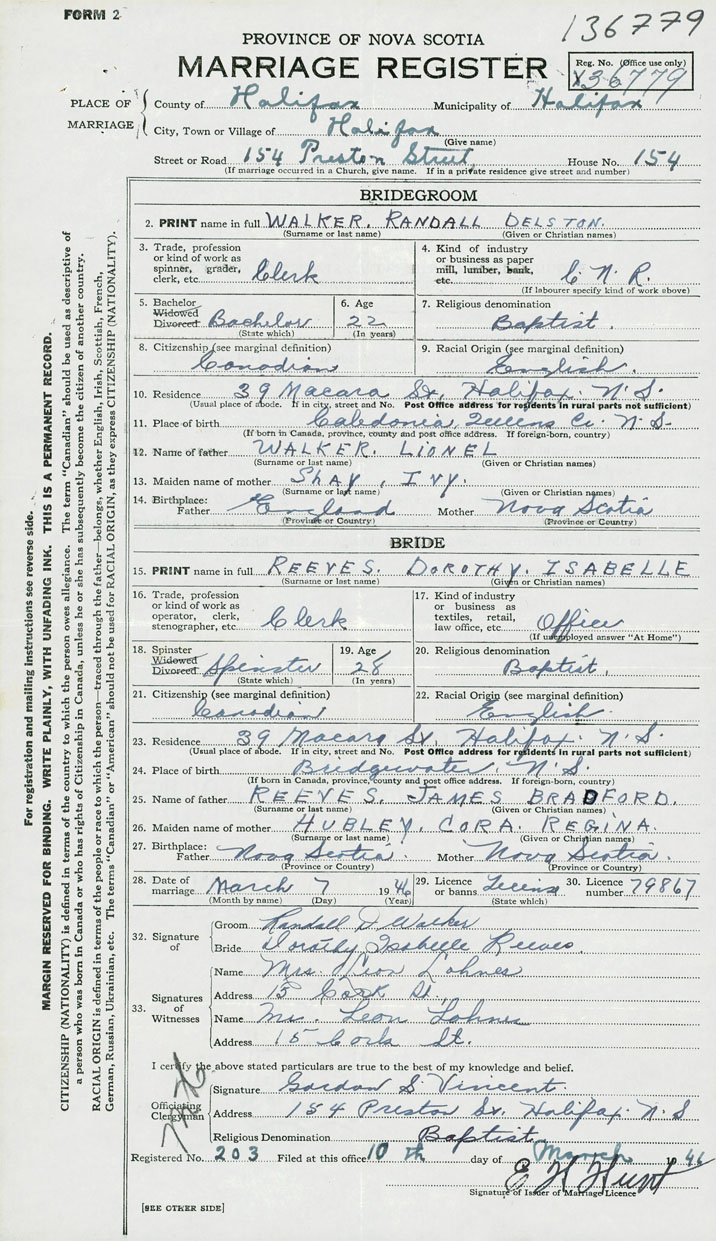 FORM 2
136779
PROVINCE OF NOVA SCOTIA
MARRIAGE REGISTER
Reg. No. (Office use only)
136779
PLACE OF MARRIAGE
County of Halifax Municipality of Halifax
City, Town or Village of Halifax
(Give name)
Street or Road 154 Preston Street, House No. 154
(If marriage occurred in a Church, give name. If in a private residence give street and number)
BRIDEGROOM
2. PRINT name in full WALKER, RANDALL DELSTON.
(Surname or last name) (Given or Christian names)
3. Trade, profession or kind of work as spinner, grader, clerk, etc. Clerk
4. Kind of industry or business as paper mill, lumber, bank, etc. C. N. R.
(If labourer specify kind of work above)
5. Bachelor Widowed Divorced Bachelor
(State which)
6. Age 22
(In years)
7. Religious denomination
Baptist.
8. Citizenship (see marginal definition)
Canadian
9. Racial Origin (see marginal definition)
English.
10. Residence 39 Macara St. Halifax N.S.
(Usual place of abode. If in city, street and No. Post Office address for residents in rural parts not sufficient)
11. Place of birth Caledonia Queens Co. N.S.
(If born in Canada, province, county and post office address. If foreign-born, country)
12. Name of father WALKER. LIONEL
(Surname or last name) (Given or Christian names)
13. Maiden name of mother SHAY, IVY.
(Surname or last name) (Given or Christian names)
14. Birthplace: Father England Mother Nova Scotia
(Province or Country) (Province or Country)
BRIDE
15. PRINT name in full REEVES. DOROTHY. ISABELLE
(Surname or last name) (Given or Christian names)
16. Trade, profession or kind of work as operator, clerk, stenographer, etc. Clerk
17. Kind of industry or business as textiles, retail, law office, etc. Office
(If unemployed answer "At Home")
18. Spinster Widowed Divorced Spinster
(State which)
19. Age 28
(In years)
20. Religious denomination
Baptist.
21. Citizenship (see marginal definition)
Canadian
22. Racial Origin (see marginal definition)
English.
23. Residence 39 Macara St. Halifax. N.S.
(Usual place of abode. If in city, street and No. Post Office address for residents in rural parts not sufficient)
24. Place of birth Bridgewater N.S.
(If born in Canada, province, county and post office address. If foreign-born, country)
25. Name of father REEVES. JAMES BRADFORD.
(Surname or last name) (Given or Christian names)
26. Maiden name of mother HUBLEY, CORA. REGINA.
(Surname or last name) (Given or Christian names)
27. Birthplace: Father Nova Scotia. Mother Nova Scotia.
(Province or Country) (Province or Country)
28. Date of marriage March 7 1946
(Month by name) (Day) (Year)
29. Licence or banns License
(State which)
30. Licence number 79867
32. Signature of
Groom Randall D Walker
Bride Dorothy Isabelle Reeves.
33. Signatures of Witnesses
Name Mrs. Lohnes
Address 15 Cork St.
Name Mr. Leon Lohnes
Address 15 Cork St.
I certify the above stated particulars are true to the best of my knowledge and belief.
Officiating Clergyman
Signature Gordon S Vincent.
Address 154 Preston St. Halifax N.S
Religious Denomination Baptist
Registered No. 203 Filed at this office 10 th day of March 1946
E H Hunt
Signature of Issuer of Marriage Licence
[SEE OTHER SIDE]
For registration and mailing instructions see reverse side.
MARGIN RESERVED FOR BINDING. WRITE PLAINLY, WITH UNFADING INK. THIS IS A PERMANENT RECORD.
CITIZENSHIP (NATIONALITY) is defined in terms of the country to which the person owes allegiance. The term "Canadian" should be used as descriptive of
a person who was born in Canada or who has rights of Citizenship in Canada, unless he or she has subsequently become the citizen of another country.
RACIAL ORIGIN is defined in terms of the people or race to which the person—traced through the father—belongs, whether English, Irish, Scottish, French,
German, Russian, Ukrainian, etc. The terms "Canadian" or "American" should not be used for RACIAL ORIGIN, as they express CITIZENSHIP (NATIONALITY).